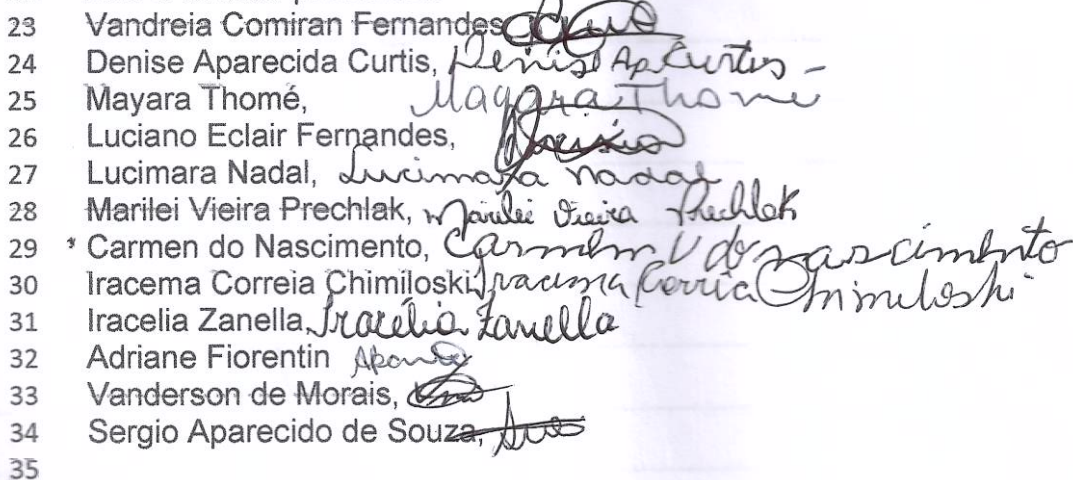 23 Vandreia Comiran Fernandes
24 Denise Aparecida Curtis, Denise Ap Curtis -
25 Mayara Thomé, Mayara Thome
26 Luciano Eclair Fernandes,
27 Lucimara Nadal, Lucimara Nadal
28 Marilei Vieira Prechlak, Marilei Vieira Prechlak
29 * Carmen do Nascimento, Carmem V do nascimento
30 Iracema Correia Chimiloski, Iracema Correia Chimiloski
31 Iracelia Zanella, Iracélia Zanella
32 Adriane Fiorentin
33 Vanderson de Morais,
34 Sergio Aparecido de Souza,
35